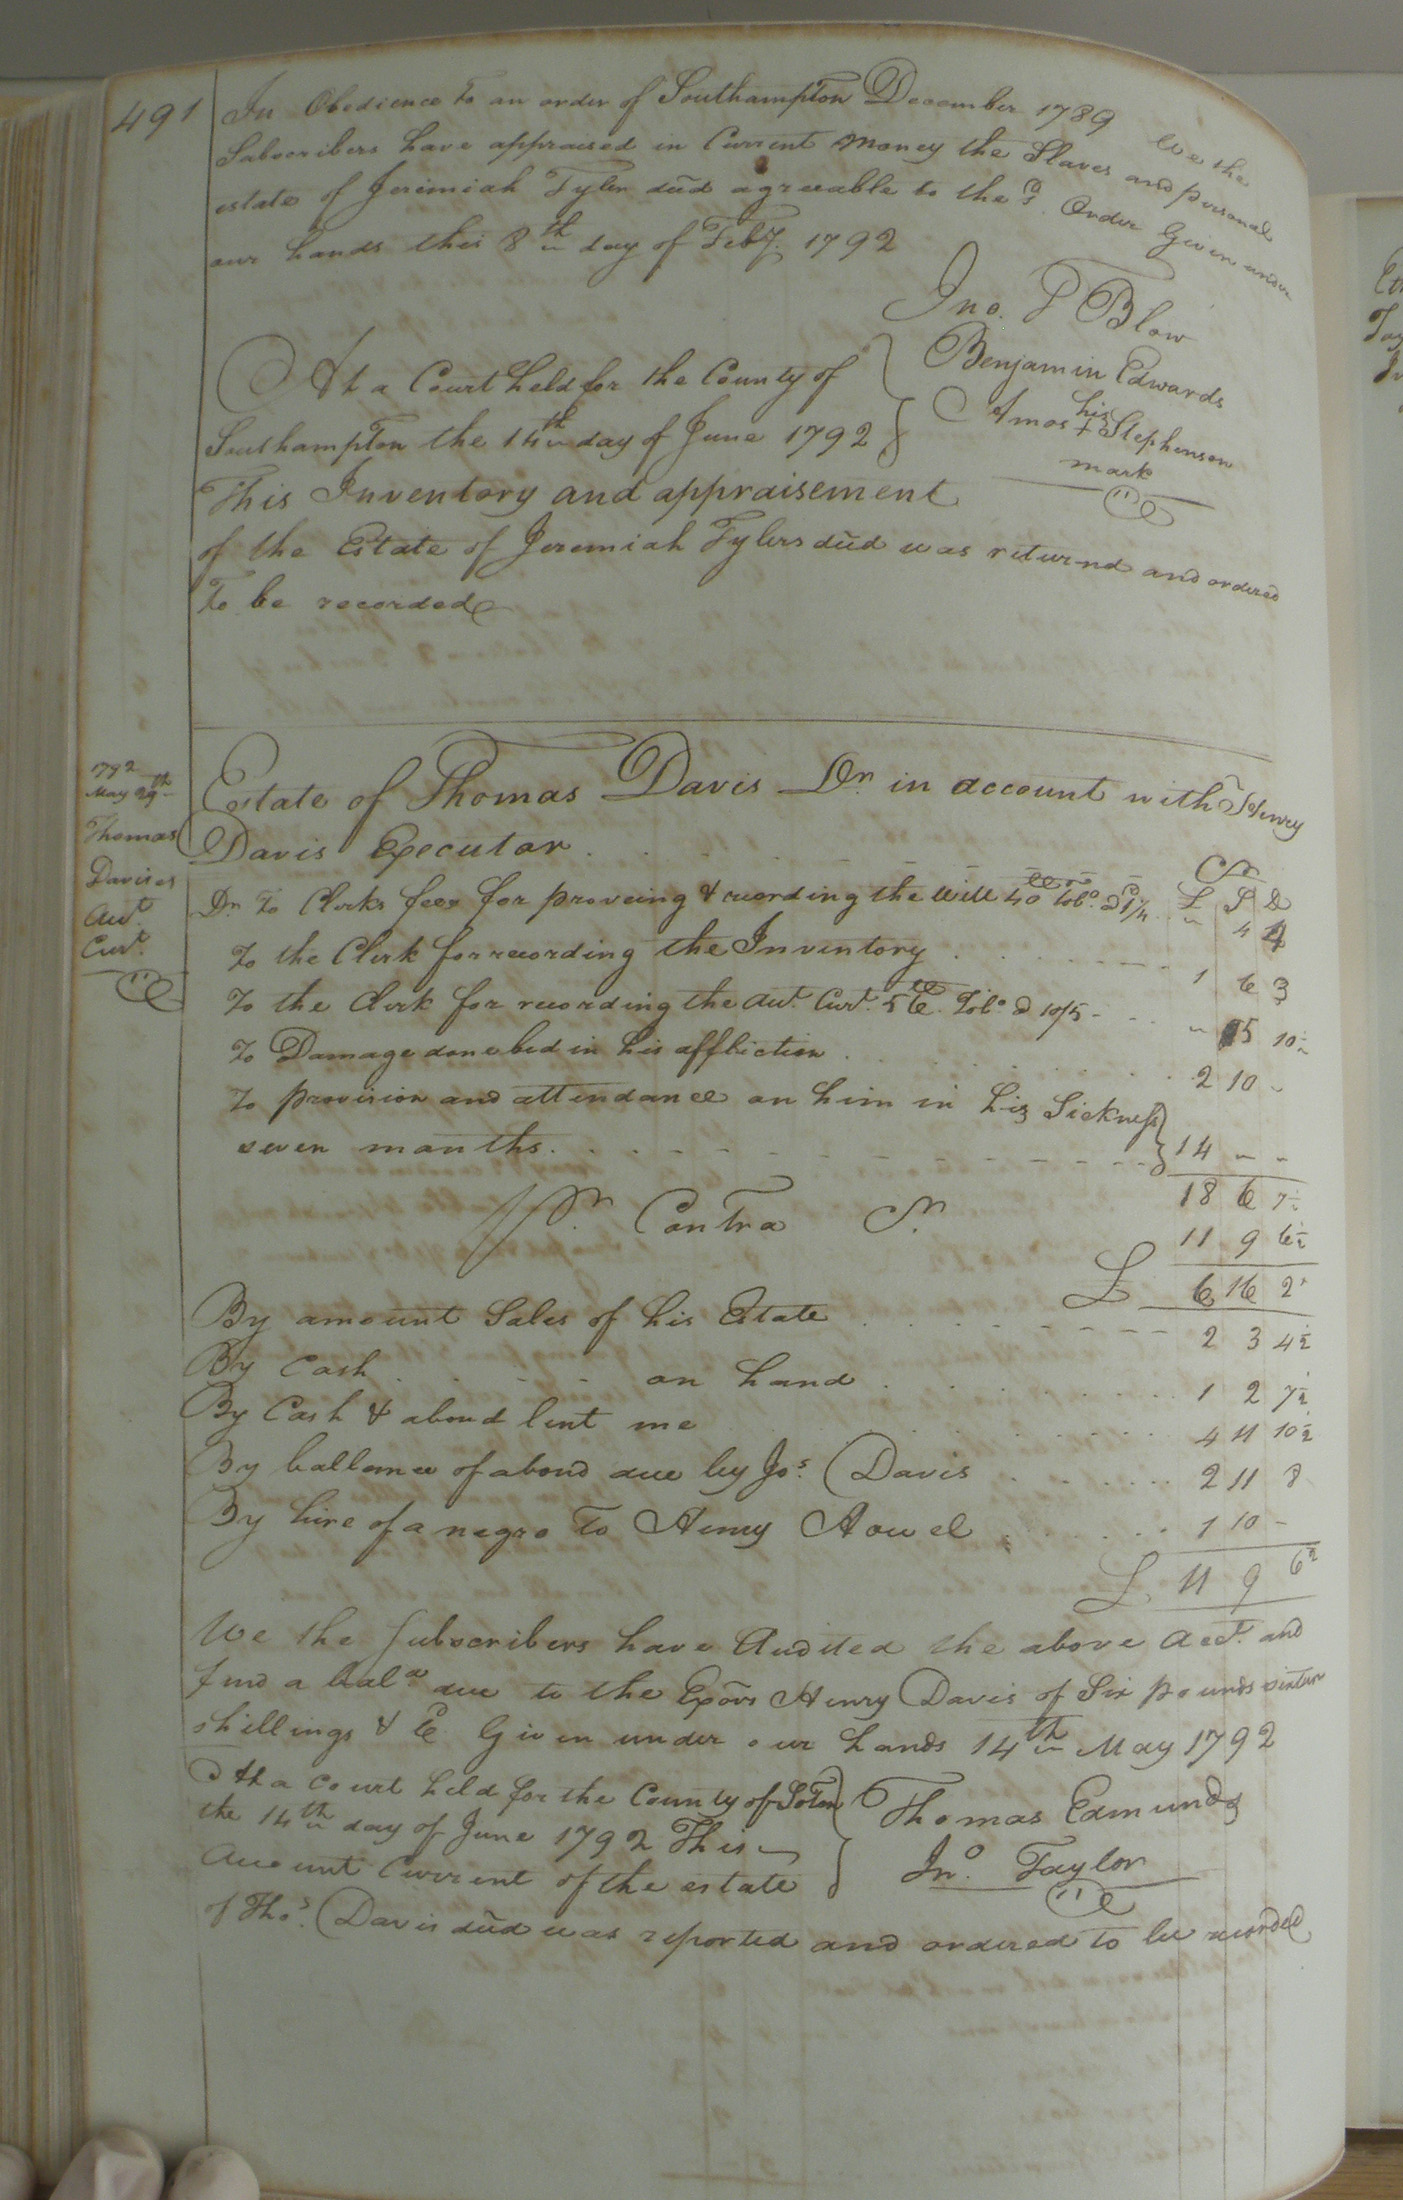 491
In Obedience to an order of Southampton December 1789 We the
Subscribers have appraised in Current Money the Slaves and personal
estate of Jeremiah Tyler decd agreeable to the sd. Order Given under
our hands this 8th day of Feby. 1792
Jno. T Blow
Benjamin Edwards
Amos his + mark Stephenson
At a Court held for the County of
Southampton the 14th day of June 1792
This Inventory and appraisement
of the Estate of Jeremiah Tylers decd was returnd and ordered
To be recorded
1792
May 29th
Thomas
Davises
Acct.
Curt.
Estate of Thomas Davis Dr. in account with Henry
Davis Executor
Cr
£ S D
Dr. To Clerks fees for proveing & recording the will 40 Tobo. @ 1 4 4
To the Clerk for recording the Inventory 1 6 3
To the Clerk for recording the Acct. Curt. Tobo @ 10/5 15 10
To Damage done bed in his affliction 2 10
To provision and attendance on him in his Sickness
seven months 14
18 6 7½
11 9 6½
£ 6 16 2
Pr. Contra Cr.
By amount Sales of his Estate 2 3 4½
By Cash on hand 1 2 7½
By Cash & abond lent me 4 11 10½
By ballance of abond due by Jos. Davis 2 11 8
By hire of a negro To Henry Howel 1 10
£ 11 9 6½
We the Subscribers have Audited the above Acct. and
find a bala due to the Exors Henry Davis of Six pounds sixteen
shillings & Given under our hands 14th May 1792
At a Court held for the County of Soton
the 14th day of June 1792 This
Account Current of the estate
of Thos. Davis decd was reported and ordered to be recorded
Thomas Edmunds
Jno. Taylor